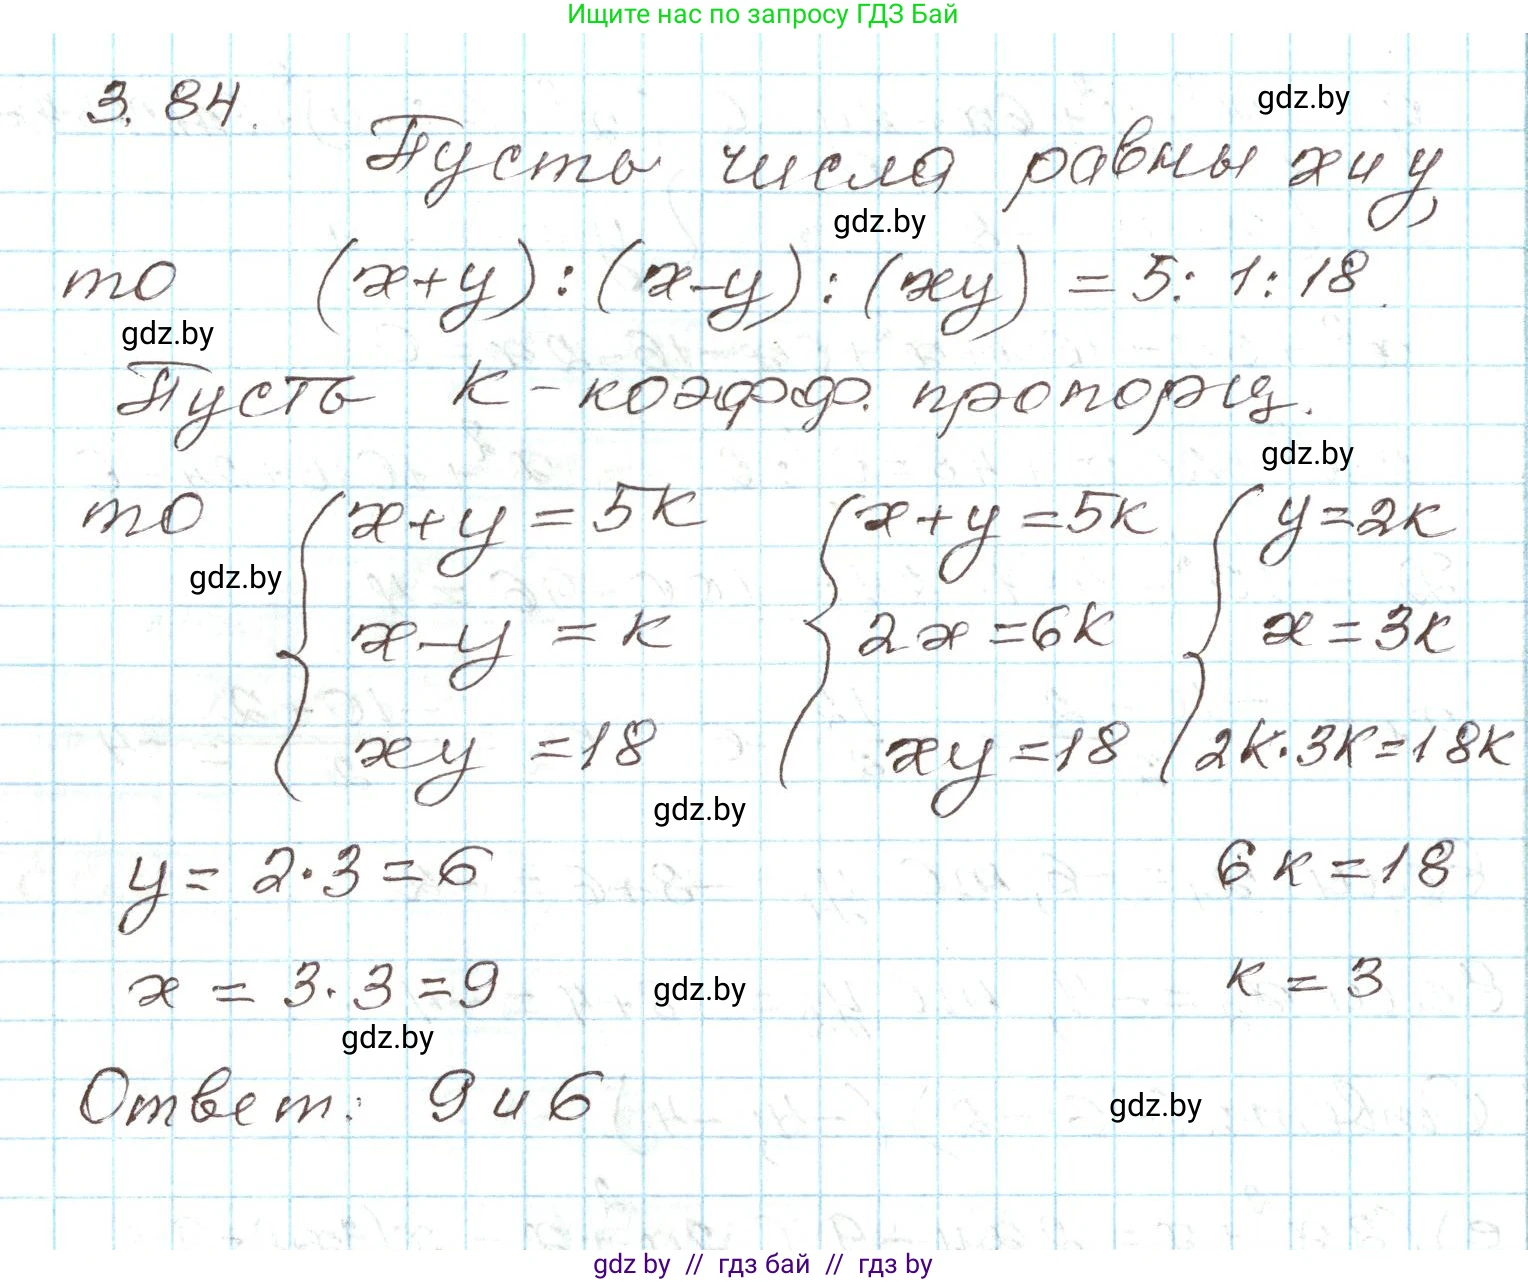 Ищите нас по запросу ГДЗ Бай
3.84.
gdz.by
Пусть числа равны x и y,
gdz.by
то (x+y) : (x-y) : (xy) = 5 : 1 : 18.
gdz.by
Пусть k - коэфф. пропорц.
gdz.by
то { x+y = 5k { x+y = 5k { y = 2k
gdz.by
x-y = k 2x = 6k x = 3k
xy = 18 xy = 18 2k·3k = 18k
gdz.by
y = 2·3 = 6 6k = 18
x = 3·3 = 9 gdz.by k = 3
gdz.by
Ответ: 9 и 6
gdz.by
gdz.by // гдз бай // гдз by